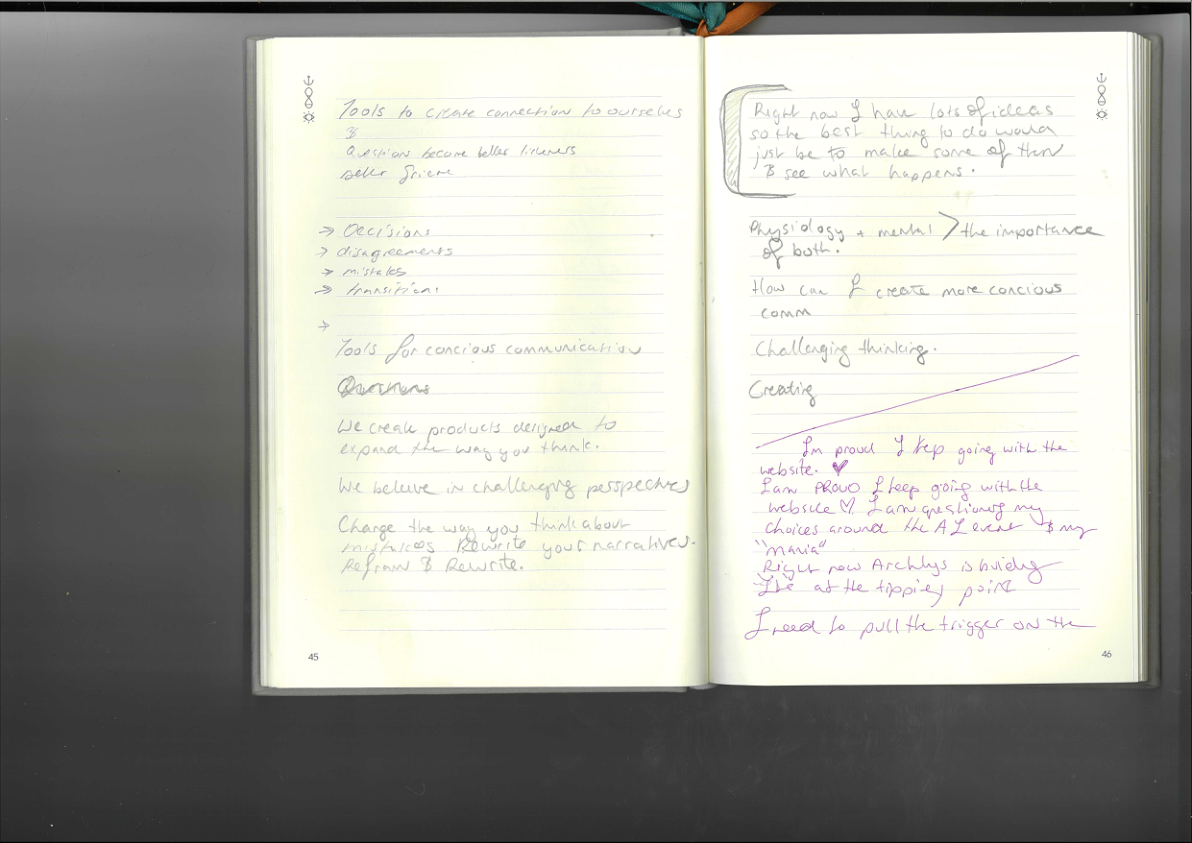 Tools to create connection to ourselves
&
Question become better listeners
better grieve
→ Decisions
→ disagreements
→ mistakes
→ transitions
→
Tools for concious communication
Questions
We create products designed to
expand the way you think.
We believe in challenging perspectives
Change the way you think about
mistakes Rewrite your narratives.
Refram & Rewrite.
45
Right now I have lots of ideas
so the best thing to do would
just be to make some of them
& see what happens.
Physiology + mental > the importance
of both.
How can I create more concious
comm
Challenging thinking.
Creating
Im proud I kep going with the
website. ♥
I am PROUD I keep going with the
website ♡. I am questioning my
choices around the AL event & my
"mania"
Right now is
at the tipping point
I need to pull the trigger on the
46